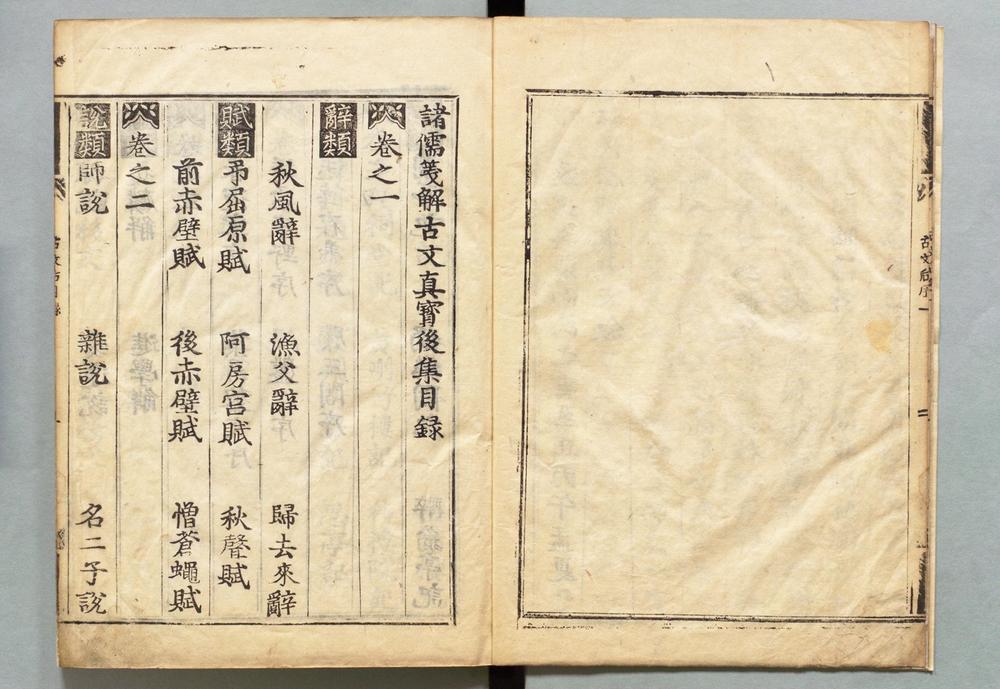 諸儒箋解古文真寳後集目録
卷之一
辭類
秋風辭 漁父辭 歸去來辭
賦類 弔屈原賦 阿房宮賦 秋聲賦
前赤壁賦 後赤壁賦 憎蒼蠅賦
卷之二
說類 師說 雜說 名二子說